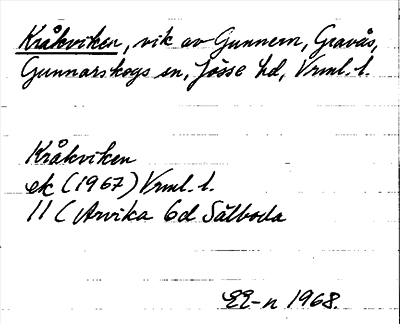 Kråkviken, vik av Gunnern, Gravås,
Gunnarskogs sn, Jösse hd, Vrml. l.
Kråkviken
ek (1967) Vrml. l.
11 C Arvika 6d Sälboda
EE-n 1968.